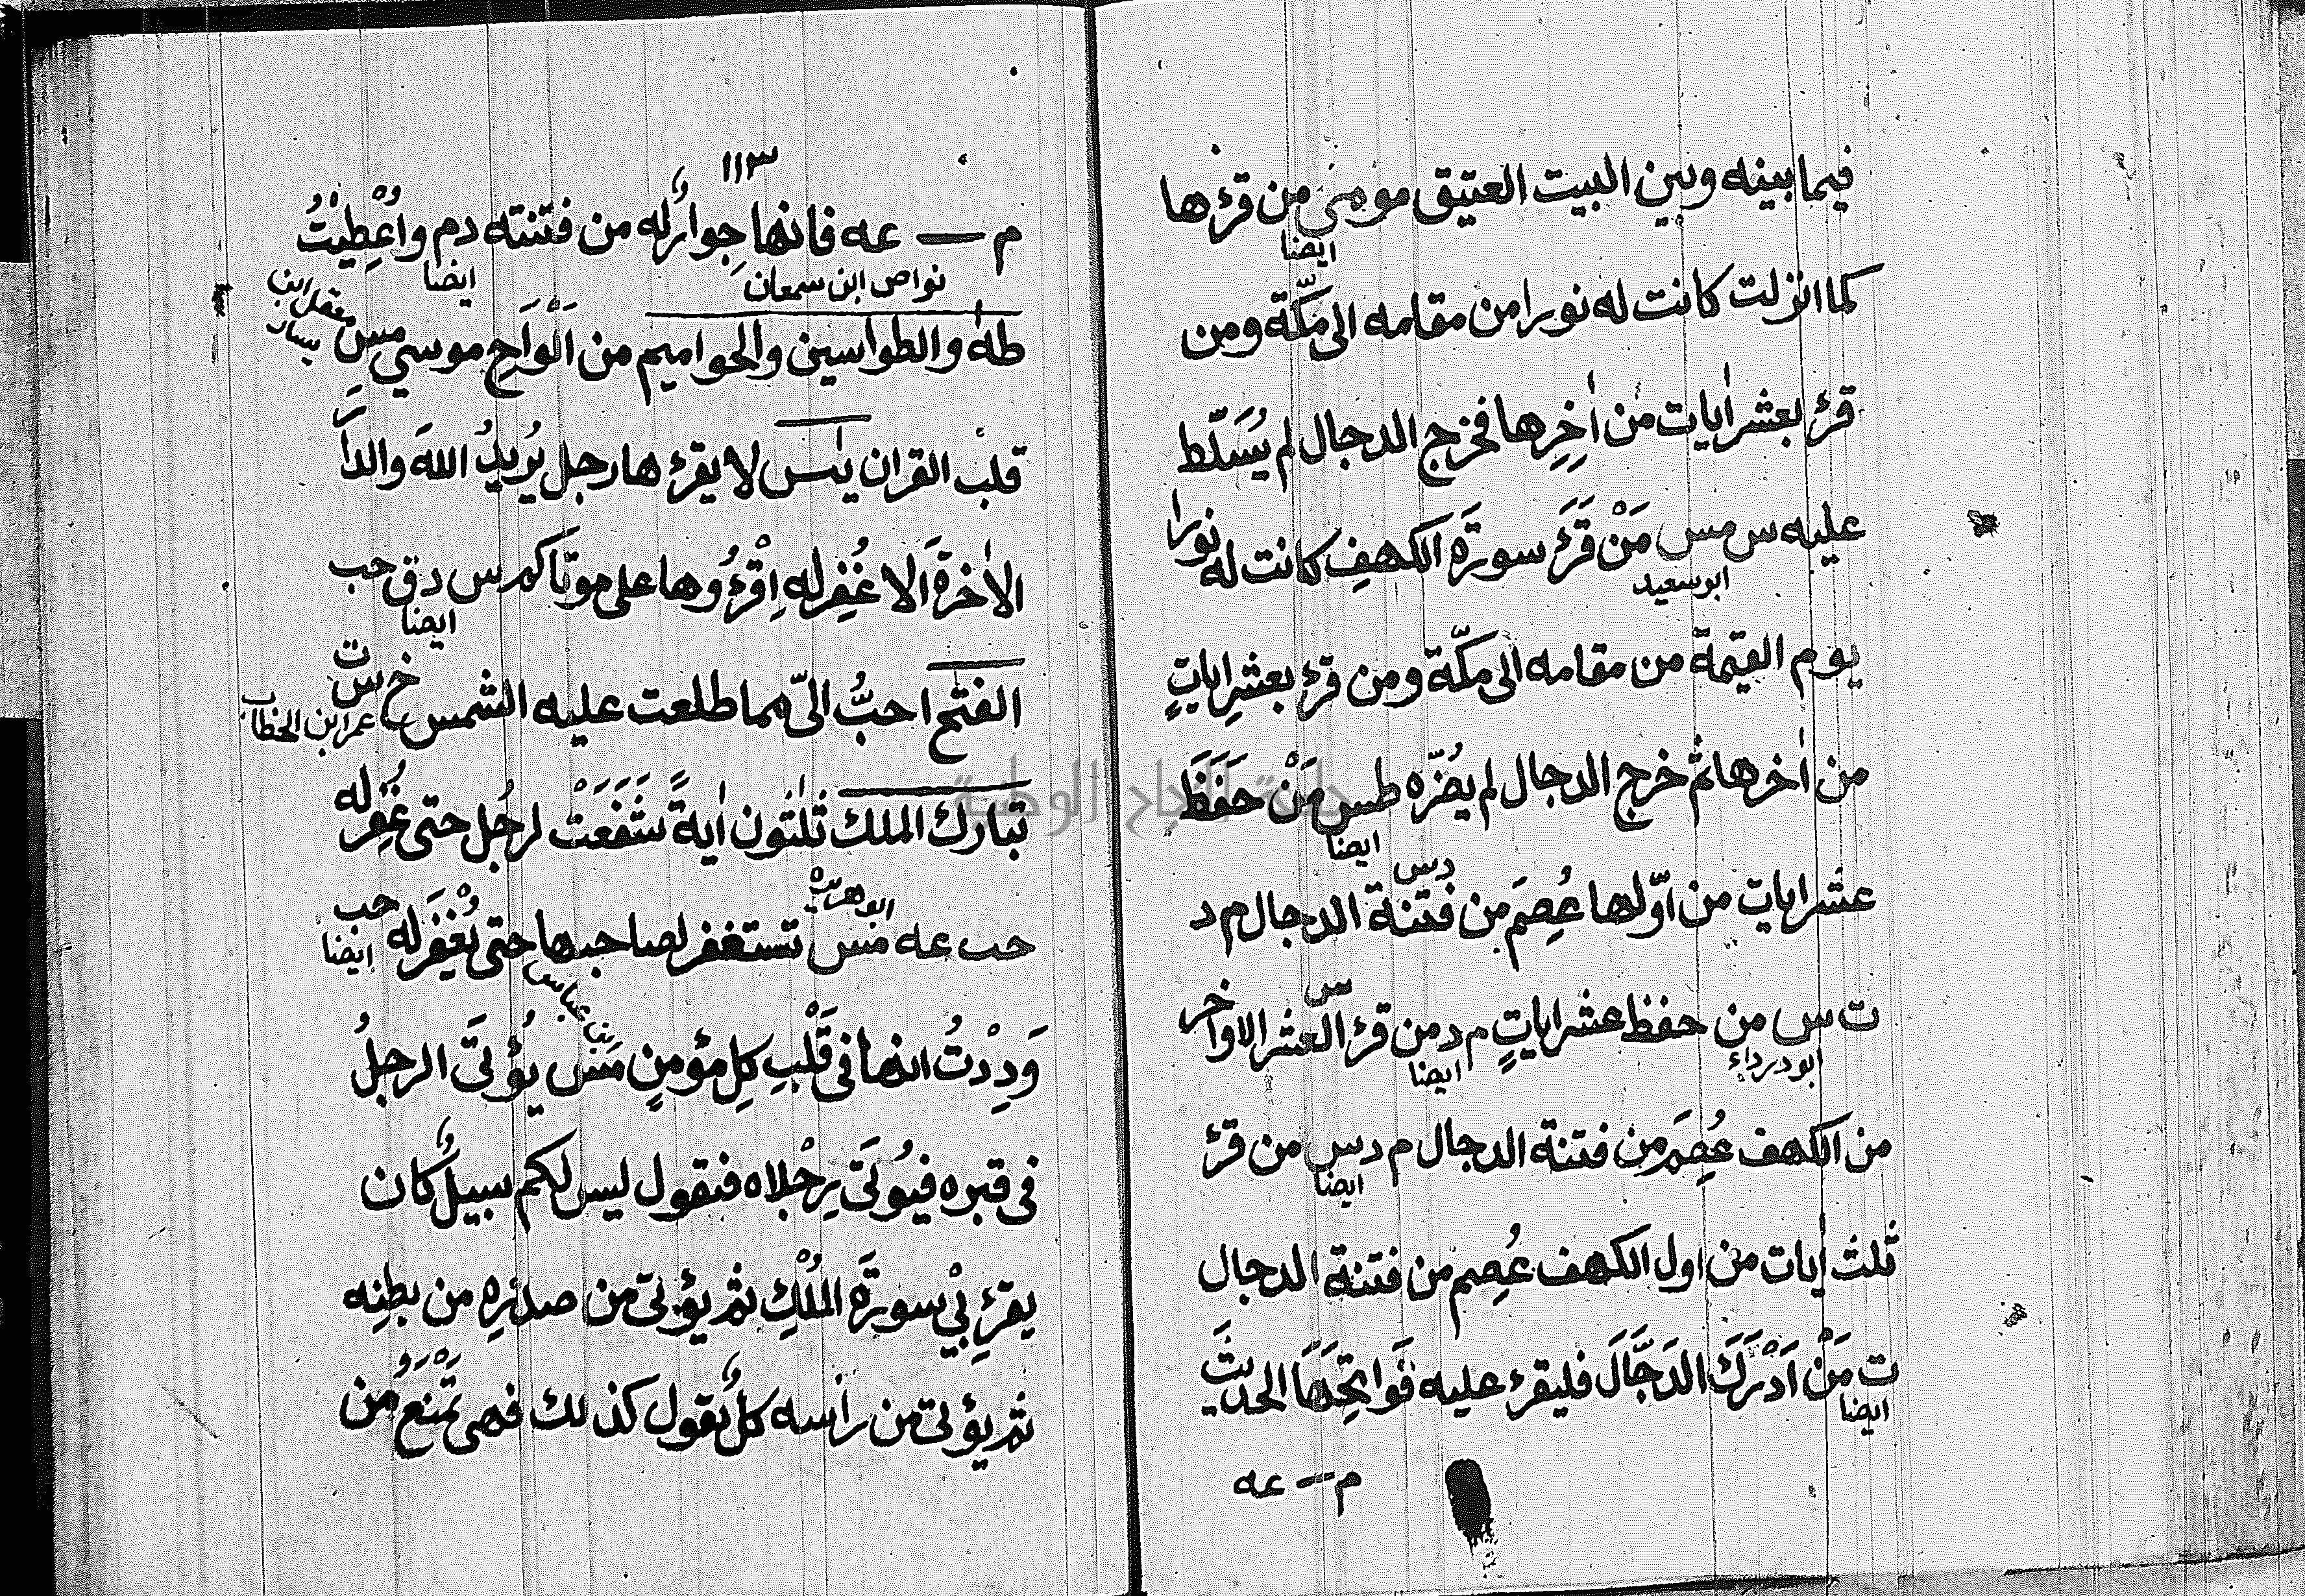 فيما بينه وبين البيت العتيق مو مى من قرءها
ايضا
كما انزلت كانت له نورا من مقامه الى مكّة ومن
قرء بعشر اٰيات من اٰخِرِها فخرج الدجال لم يُسَلّط
عليه س مس مَنْ قَرَءَ سورَة الكهفِ كانت له نورا
ابو سعيد
يوم القيٰمة من مقامه الى مكّة ومن قرء بعشرِ اياتٍ
من اٰخرها ثم خرج الدجال لم يضُرّه طس مَنْ حَفَظَ
ايضا
عشر ايات من اوّلها عُصِمَ من فتنة الدجال م د
دس
ت س من حفظ عشر اياتٍ م د من قرء العشر الاواخر
س
ابو درداء
ايضا
من الكهف عُصِمَ من فتنة الدجال م د س من قرء
ايضا
ثلث اٰيات من اول الكهف عُصِم من فتنة الدجال
ت مَنْ اَدْرَكَ الدَجَّالَ فليقرء عليه فَوَاتِحَهَا الحديث
ايضا
م — عه
١١٣
م — عه فانها جِوارٌ له من فتنته د م واُعْطِيْتُ
نواص ابن سمعان
ايضا
طهٰ والطواسين والحواميم من اَلْوَاحِ موسي مس
معقل ابن يسار
قلبُ القران يٰس لا يقرءها رجل يُريدُ اللهَ والدارَ
الاٰخرةَ الا غُفِر له اِقْرَءُوها على موتاكم س د ق حب
ايضا
الفتح احبُّ الىّ مما طلعت عليه الشمس خ س ت
عمر ابن الخطاب
تبارك الملك ثلٰثون اٰيةً شَفَعَتْ لرجُل حتى غُفِر له
حب عه مس تستغفر لصاحبها حتى يُغْفَرَ له حب
ابو هريرة
ايضا
وَدِدْتُ انها فى قَلْبِ كلِ مؤمنٍ مس يُؤتَى الرجلُ
ابن عباس
فى قبره فيُوتَى رِجْلاه فتقول ليس لكم سبيلٌ كان
يقرءِ بِيْ سورَة المُلْكِ ثم يؤتى من صدرِهِ من بطنِه
ثم يؤتى من راسه كلٌ يقول كذلك فهى تَمْنَعُ من